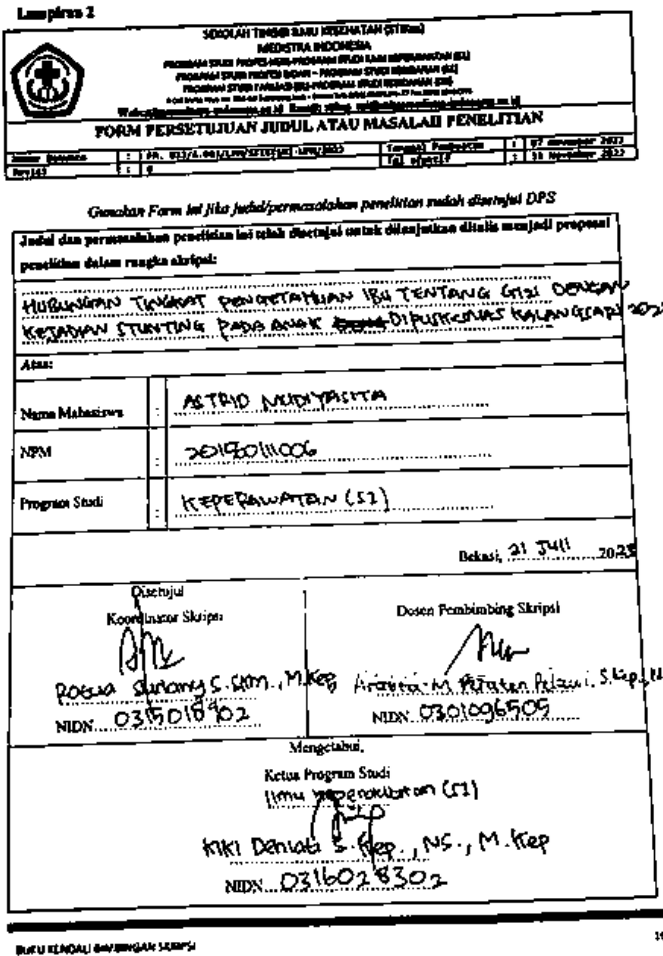 Lampiran 2
SEKOLAH TINGGI ILMU KESEHATAN (STIKes)
MEDISTRA INDONESIA
PROGRAM STUDI PROFESI NERS-PROGRAM STUDI ILMU KEPERAWATAN (S1)
PROGRAM STUDI PROFESI BIDAN – PROGRAM STUDI KEBIDANAN (S1)
PROGRAM STUDI FARMASI (S1)-PROGRAM STUDI KEBIDANAN (D3)
FORM PERSETUJUAN JUDUL ATAU MASALAH PENELITIAN
Nomor Dokumen : Tanggal Pembuatan : 07 November 2022
Revisi : 0 Tgl efektif : November 2022
Gunakan Form ini jika judul/permasalahan penelitian sudah disetujui DPS
Judul dan permasalahan penelitian ini telah disetujui untuk dilanjutkan ditulis menjadi proposal
penelitian dalam rangka skripsi:
HUBUNGAN TINGKAT PENGETAHUAN IBU TENTANG GIZI DENGAN
KEJADIAN STUNTING PADA ANAK DIPUSKESMAS KALANGSARI
Atas:
Nama Mahasiswa : ASTRID
NPM :
Program Studi : KEPERAWATAN (S1)
Bekasi, 21 Juli 2023
Disetujui
Koordinator Skripsi
Dosen Pembimbing Skripsi
Rotua S. SKM., M.Kep
S.Kep.,
NIDN. 0315018902
NIDN. 0301096505
Mengetahui,
Ketua Program Studi
Ilmu Keperawatan (S1)
Kiki Deniati S.Kep., NS., M.Kep
NIDN. 0316028302
BUKU KENDALI BIMBINGAN SKRIPSI